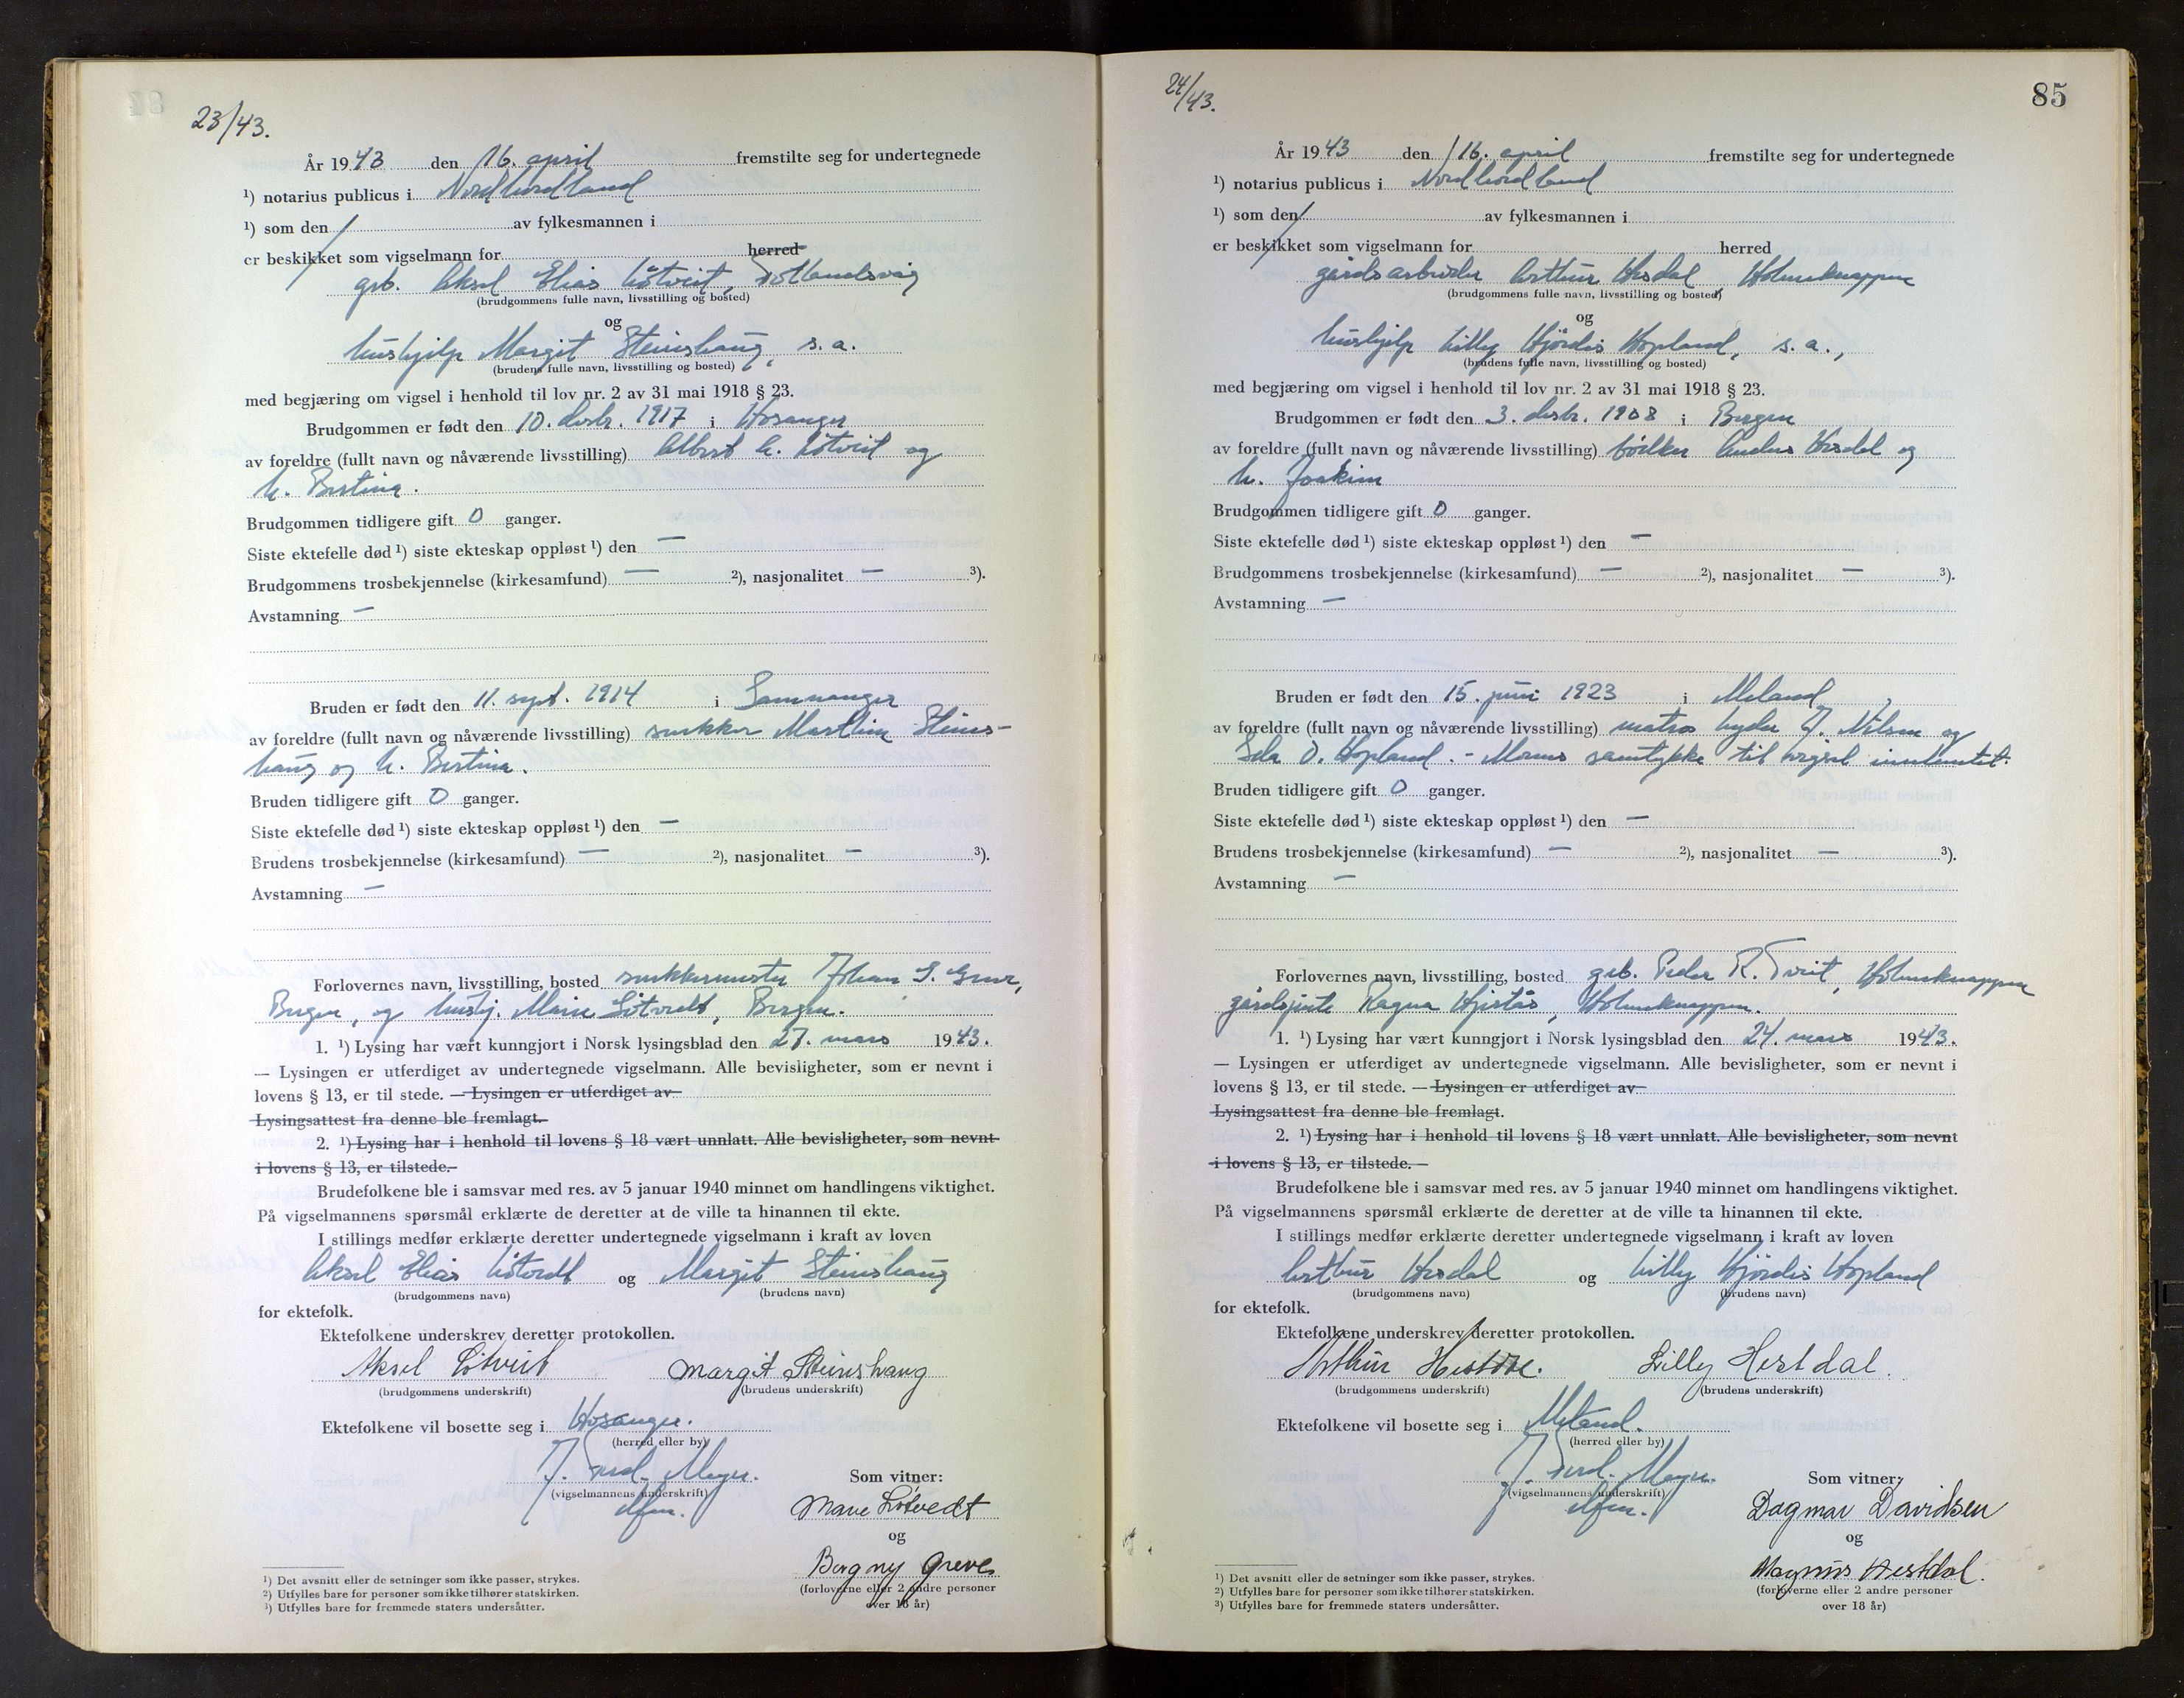 23/43.
År 1943 den 16. april fremstilte seg for undertegnede
¹) notarius publicus i Nordhordland
¹) som den av fylkesmannen i
er beskikket som vigselmann for herred
grb. Aksel Elias Lötveit,
(brudgommens fulle navn, livsstilling og bosted)
og
hushjelp Margit Steinshaug, s. a.
(brudens fulle navn, livsstilling og bosted)
med begjæring om vigsel i henhold til lov nr. 2 av 31 mai 1918 § 23.
Brudgommen er født den 10. desbr. 1917 i Hosanger
av foreldre (fullt navn og nåværende livsstilling) Albert A. Lötveit og
h. Bertina.
Brudgommen tidligere gift 0 ganger.
Siste ektefelle død ¹) siste ekteskap oppløst ¹) den —
Brudgommens trosbekjennelse (kirkesamfund) — ²), nasjonalitet — ³).
Avstamning —
Bruden er født den 11. sept. 1914 i Samnanger
av foreldre (fullt navn og nåværende livsstilling) snekker Marthin Steins-
haug og h. Bertina.
Bruden tidligere gift 0 ganger.
Siste ektefelle død ¹) siste ekteskap oppløst ¹) den —
Brudens trosbekjennelse (kirkesamfund) — ²), nasjonalitet — ³).
Avstamning —
Forlovernes navn, livsstilling, bosted snekkermester Johan S. Greve,
Bergen, og hushj. Marie Lötvedt, Bergen.
1. ¹) Lysing har vært kunngjort i Norsk lysingsblad den 27. mars 1943.
— Lysingen er utferdiget av undertegnede vigselmann. Alle bevisligheter, som er nevnt i
lovens § 13, er til stede. — Lysingen er utferdiget av
Lysingsattest fra denne ble fremlagt.
2. ¹) Lysing har i henhold til lovens § 18 vært unnlatt. Alle bevisligheter, som nevnt
i lovens § 13, er tilstede.
Brudefolkene ble i samsvar med res. av 5 januar 1940 minnet om handlingens viktighet.
På vigselmannens spørsmål erklærte de deretter at de ville ta hinannen til ekte.
I stillings medfør erklærte deretter undertegnede vigselmann i kraft av loven
Aksel Elias Lötvedt og Margit Steinshaug
(brudgommens navn) (brudens navn)
for ektefolk.
Ektefolkene underskrev deretter protokollen.
Aksel Lötveit Margit Steinshaug
(brudgommens underskrift) (brudens underskrift)
Ektefolkene vil bosette seg i Hosanger.
(herred eller by)
J. Ferd. Meyer.
(vigselmannens underskrift)
Som vitner:
Marie Lötvedt
og
Borgny Greve
(forloverne eller 2 andre personer
over 18 år)
¹) Det avsnitt eller de setninger som ikke passer, strykes.
²) Utfylles bare for personer som ikke tilhører statskirken.
³) Utfylles bare for fremmede staters undersåtter.
24/43.
85
År 1943 den 16. april fremstilte seg for undertegnede
¹) notarius publicus i Nordhordland
¹) som den av fylkesmannen i
er beskikket som vigselmann for herred
gårdsarbeider Arthur Hesdal Holmeknappen
(brudgommens fulle navn, livsstilling og bosted)
og
hushjelp Lilly Hjördis Hopland, s. a.,
(brudens fulle navn, livsstilling og bosted)
med begjæring om vigsel i henhold til lov nr. 2 av 31 mai 1918 § 23.
Brudgommen er født den 3. desbr. 1908 i Bergen
av foreldre (fullt navn og nåværende livsstilling) bödker Anders Hesdal og
h. Joakim
Brudgommen tidligere gift 0 ganger.
Siste ektefelle død ¹) siste ekteskap oppløst ¹) den —
Brudgommens trosbekjennelse (kirkesamfund) — ²), nasjonalitet — ³).
Avstamning —
Bruden er født den 15. juni 1923 i Meland,
av foreldre (fullt navn og nåværende livsstilling) matros Lyder J. Nilsen og
Ida O. Hopland. - Morens samtykke til vigsel innhentet.
Bruden tidligere gift 0 ganger.
Siste ektefelle død ¹) siste ekteskap oppløst ¹) den —
Brudens trosbekjennelse (kirkesamfund) — ²), nasjonalitet — ³).
Avstamning —
Forlovernes navn, livsstilling, bosted grb. Peder R. Tveit, Holmeknappen
gårdsjente Ragna Hjertås, Holmeknappen.
1. ¹) Lysing har vært kunngjort i Norsk lysingsblad den 24. mars 1943.
— Lysingen er utferdiget av undertegnede vigselmann. Alle bevisligheter, som er nevnt i
lovens § 13, er til stede. — Lysingen er utferdiget av
Lysingsattest fra denne ble fremlagt.
2. ¹) Lysing har i henhold til lovens § 18 vært unnlatt. Alle bevisligheter, som nevnt
i lovens § 13, er tilstede. —
Brudefolkene ble i samsvar med res. av 5 januar 1940 minnet om handlingens viktighet.
På vigselmannens spørsmål erklærte de deretter at de ville ta hinannen til ekte.
I stillings medfør erklærte deretter undertegnede vigselmann i kraft av loven
Arthur Hesdal og Lilly Hjördis Hopland
(brudgommens navn) (brudens navn)
for ektefolk.
Ektefolkene underskrev deretter protokollen.
Arthur Hestdal. Lilly Hestdal.
(brudgommens underskrift) (brudens underskrift)
Ektefolkene vil bosette seg i Meland.
(herred eller by)
J. Ferd. Meyer.
(vigselmannens underskrift)
Som vitner:
Dagmar Davidsen
og
Magnus Hestdal.
(forloverne eller 2 andre personer
over 18 år)
¹) Det avsnitt eller de setninger som ikke passer, strykes.
²) Utfylles bare for personer som ikke tilhører statskirken.
³) Utfylles bare for fremmede staters undersåtter.